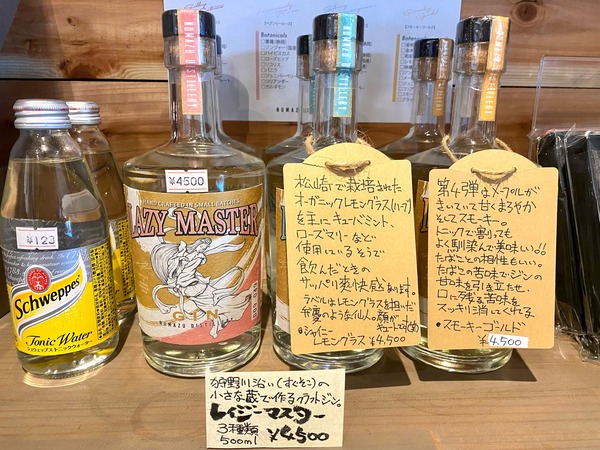 NUMAZU DISTILLERY
NUMAZU DISTILLERY
Botanicals
Botanicals
NUMAZU
Schweppes
¥123
Schweppes
Tonic Water
シュウェップストニックウォーター
¥4500
HAND CRAFTED IN SMALL BATCHES
LAZY MASTER
GIN
NUMAZU DISTILLERY
松崎で栽培された
オーガニックレモングラス(ハーブ)
を主にキューバミント、
ローズマリーなど
使用しているそうで
飲んだときの
サッパリ爽快感あります。
ラベルはレモングラスを担いだ
弁慶のような仙人。顔が
キュートです(笑)
•シャイニー
レモングラス ¥4,500
第4弾はメープルが
きいていて甘くまろやか
そしてスモーキー。
トニックで割っても
よく馴染んで美味しい!!
たばことの相性もいい。
たばこの苦味でジンの
甘味を引き立たせ、
口に残る苦味を
スッキリ消してくれる
•スモーキーゴールド
¥4,500
狩野川沿い(すぐそこ)の
小さな蔵で作るクラフトジン。
レイジーマスター
3種類 ¥4,500
500ml